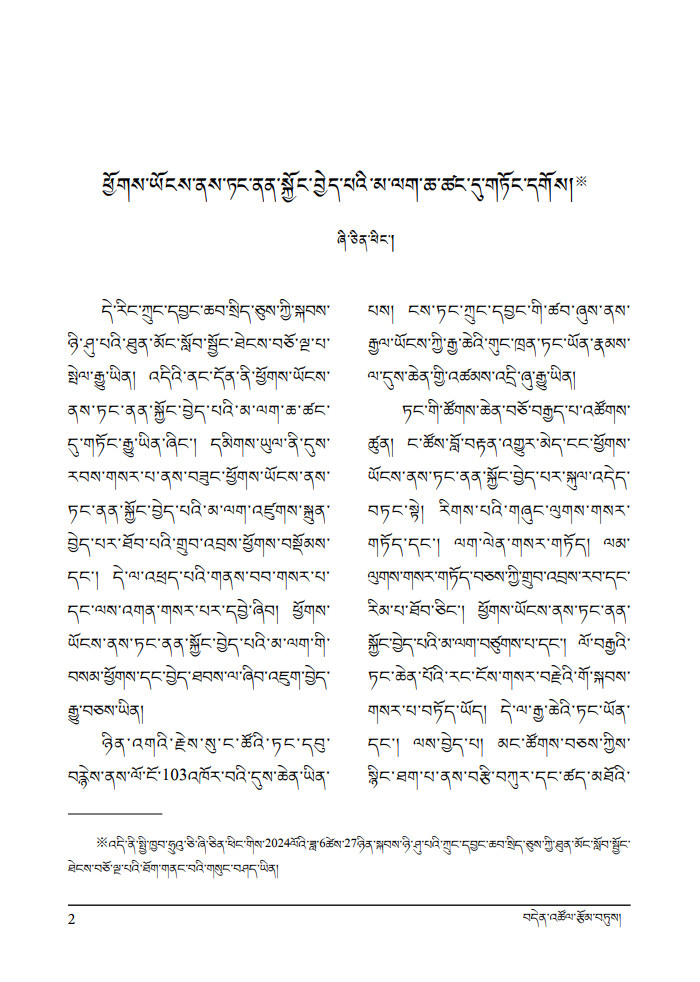 ཕྱོགས་ཡོངས་ནས་ཏང་ནན་སྐྱོང་བྱེད་པའི་མ་ལག་ཆ་ཚང་དུ་གཏོང་དགོས།※
ཞི་ཅིན་ཕིང་།
དེ་རིང་ཀྲུང་དབྱང་ཆབ་སྲིད་ཅུས་ཀྱི་སྐབས་
ཉི་ཤུ་པའི་ཐུན་མོང་སློབ་སྦྱོང་ཐེངས་བཅོ་ལྔ་པ་
སྤེལ་རྒྱུ་ཡིན། འདིའི་ནང་དོན་ནི་ཕྱོགས་ཡོངས་
ནས་ཏང་ནན་སྐྱོང་བྱེད་པའི་མ་ལག་ཆ་ཚང་
དུ་གཏོང་རྒྱུ་ཡིན་ཞིང་། དམིགས་ཡུལ་ནི་དུས་
རབས་གསར་པ་ནས་བཟུང་ཕྱོགས་ཡོངས་ནས་
ཏང་ནན་སྐྱོང་བྱེད་པའི་མ་ལག་འཛུགས་སྐྲུན་
བྱེད་པར་ཐོབ་པའི་གྲུབ་འབྲས་ཕྱོགས་བསྡོམས་
དང་། དེ་ལ་འཕྲད་པའི་གནས་བབ་གསར་པ་
དང་ལས་འགན་གསར་པར་དབྱེ་ཞིབ། ཕྱོགས་
ཡོངས་ནས་ཏང་ནན་སྐྱོང་བྱེད་པའི་མ་ལག་གི་
བསམ་ཕྱོགས་དང་བྱེད་ཐབས་ལ་ཞིབ་འཇུག་བྱེད་
རྒྱུ་བཅས་ཡིན།
ཉིན་འགའི་རྗེས་སུ་ང་ཚོའི་ཏང་དབུ་
བརྙེས་ནས་ལོ་ངོ་103འཁོར་བའི་དུས་ཆེན་ཡིན་
པས། ངས་ཏང་ཀྲུང་དབྱང་གི་ཚབ་ཞུས་ནས་
རྒྱལ་ཡོངས་ཀྱི་རྒྱ་ཆེའི་གུང་ཁྲན་ཏང་ཡོན་རྣམས་
ལ་དུས་ཆེན་གྱི་འཚམས་འདྲི་ཞུ་རྒྱུ་ཡིན།
ཏང་གི་ཚོགས་ཆེན་བཅོ་བརྒྱད་པ་འཚོགས་
ཚུན། ང་ཚོས་བློ་བརྟན་འགྱུར་མེད་ངང་ཕྱོགས་
ཡོངས་ནས་ཏང་ནན་སྐྱོང་བྱེད་པར་སྐུལ་འདེད་
བཏང་སྟེ། རིགས་པའི་གཞུང་ལུགས་གསར་
གཏོད་དང་། ལག་ལེན་གསར་གཏོད། ལམ་
ལུགས་གསར་གཏོད་བཅས་ཀྱི་གྲུབ་འབྲས་རབ་དང་
རིམ་པ་ཐོབ་ཅིང་། ཕྱོགས་ཡོངས་ནས་ཏང་ནན་
སྐྱོང་བྱེད་པའི་མ་ལག་བཙུགས་པ་དང་། ལོ་བརྒྱའི་
ཏང་ཆེན་པོའི་རང་ངོས་གསར་བརྗེའི་གོ་སྐབས་
གསར་པ་བཏོད་ཡོད། དེ་ལ་རྒྱ་ཆེའི་ཏང་ཡོན་
དང་། ལས་བྱེད་པ། མང་ཚོགས་བཅས་ཀྱིས་
སྙིང་ཐག་པ་ནས་བརྩི་བཀུར་དང་ཚད་མཐོའི་
※འདི་ནི་སྤྱི་ཁྱབ་ཧྲུའུ་ཅི་ཞི་ཅིན་ཕིང་གིས་2024ལོའི་ཟླ་6ཚེས་27ཉིན་སྐབས་ཉི་ཤུ་པའི་ཀྲུང་དབྱང་ཆབ་སྲིད་ཅུས་ཀྱི་ཐུན་མོང་སློབ་སྦྱོང་
ཐེངས་བཅོ་ལྔ་པའི་ཐོག་གནང་བའི་གསུང་བཤད་ཡིན།
2
བདེན་འཚོལ་རྩོམ་བཏུས།